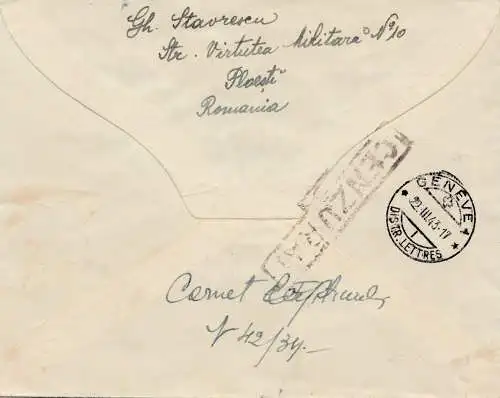 Gh. Stavrescu
Str. Virtutea Militară No 10
Ploești
Romania
CENZURAT
GENÈVE 1
22.III.43-17
DISTR. LETTRES
1
Carnet
N 42/34.-